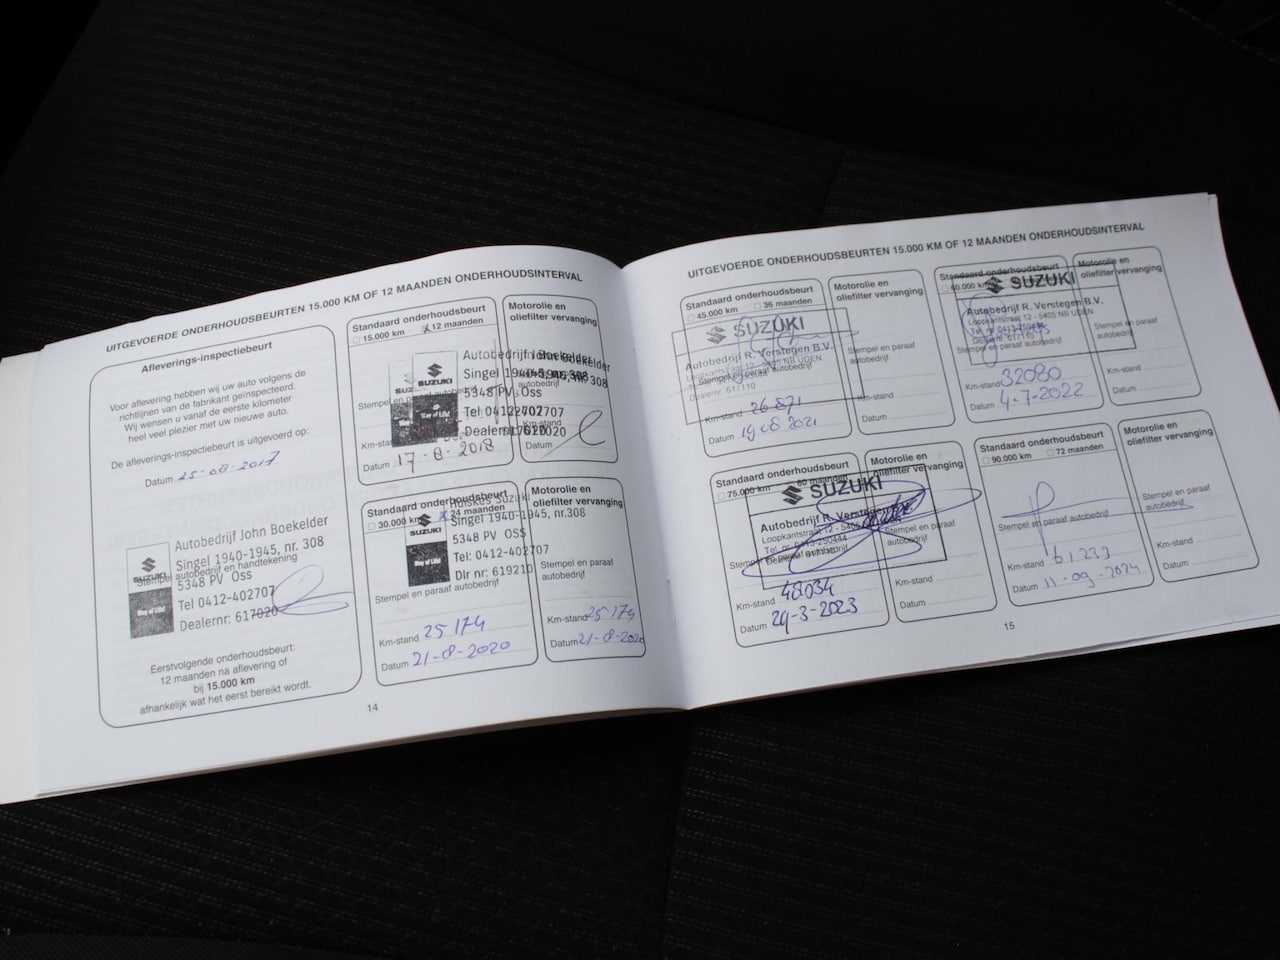 UITGEVOERDE ONDERHOUDSBEURTEN 15.000 KM OF 12 MAANDEN ONDERHOUDSINTERVAL
Afleverings-inspectiebeurt
Voor aflevering hebben wij uw auto volgens de
richtlijnen van de fabrikant geïnspecteerd.
Wij wensen u vanaf de eerste kilometer
heel veel plezier met uw nieuwe auto.
De afleverings-inspectiebeurt is uitgevoerd op:
Datum 25-08-2017
Autobedrijf John Boekelder
Singel 1940-1945, nr. 308
5348 PV Oss
Tel 0412-402707
Dealernr: 617020
SUZUKI
Way of Life!
Stempel autobedrijf en handtekening
Eerstvolgende onderhoudsbeurt:
12 maanden na aflevering of
bij 15.000 km
afhankelijk wat het eerst bereikt wordt.
Standaard onderhoudsbeurt
15.000 km x 12 maanden
SUZUKI
Way of Life!
Autobedrijf
Singel
5348 PV Oss
Datum 17-8-2018
Motorolie en
oliefilter vervanging
Boekelder
nr. 308
Datum
Standaard onderhoudsbeurt
30.000 km x 24 maanden
SUZUKI
Suzuki
Singel 1940-1945, nr.308
5348 PV OSS
Tel: 0412-402707
Dlr nr: 619210
Stempel en paraaf autobedrijf
Km-stand 25174
Datum 21-8-2020
Motorolie en
oliefilter vervanging
Stempel en paraaf
autobedrijf
Km-stand 25174
Datum 21-8-2020
14
UITGEVOERDE ONDERHOUDSBEURTEN 15.000 KM OF 12 MAANDEN ONDERHOUDSINTERVAL
Standaard onderhoudsbeurt
45.000 km 36 maanden
SUZUKI
Autobedrijf R. Verstegen B.V.
Loopkantstraat 12 - 5405 NB UDEN
Dealernr 617110
Stempel en paraaf autobedrijf
Km-stand 26871
Datum 19 08 2021
Motorolie en
oliefilter vervanging
Stempel en paraaf
autobedrijf
Km-stand
Datum
Standaard onderhoudsbeurt
60.000 km
SUZUKI
Autobedrijf R. Verstegen B.V.
Loopkantstraat 12 - 5405 NB UDEN
Tel. nr. 0413-250444
Dealernr. 617110
Stempel en paraaf autobedrijf
Km-stand 32080
Datum 4-7-2022
Motorolie en
oliefilter vervanging
Stempel en paraaf
autobedrijf
Km-stand
Datum
Standaard onderhoudsbeurt
75.000 km 60 maanden
SUZUKI
Autobedrijf R. Verstegen
Loopkantstraat 12 - 5405
Tel. nr. 0413-250444
Stempel en paraaf autobedrijf
Km-stand 48034
Datum 29-3-2023
Motorolie en
oliefilter vervanging
Stempel en paraaf
autobedrijf
Km-stand
Datum
Standaard onderhoudsbeurt
90.000 km 72 maanden
Stempel en paraaf autobedrijf
Km-stand 61233
Datum 11-09-2024
Motorolie en
oliefilter vervanging
Stempel en paraaf
autobedrijf
Km-stand
Datum
15